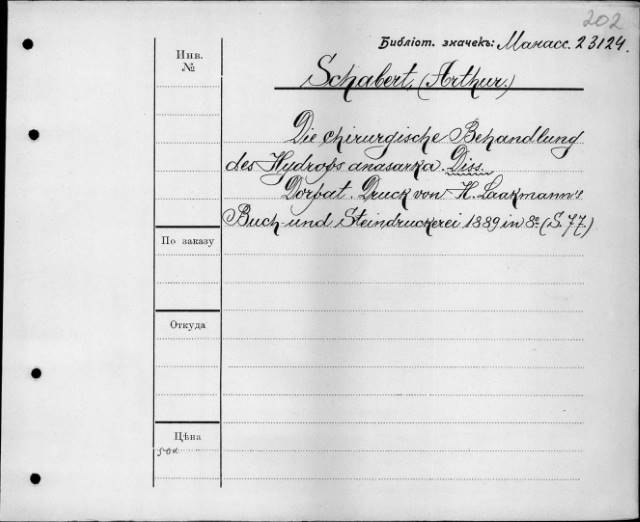 202
Библіот. значекъ: Манасс. 23124.
Инв.
№
Schabert, (Arthur.)
Die chirurgische Behandlung
des Hydrops anasarka. Diss.
Dorpat. Druck von H. Laakmann's
Buch- und Steindruckerei 1889 in 8º (S. 77.)
По заказу
Откуда
Цѣна
50к